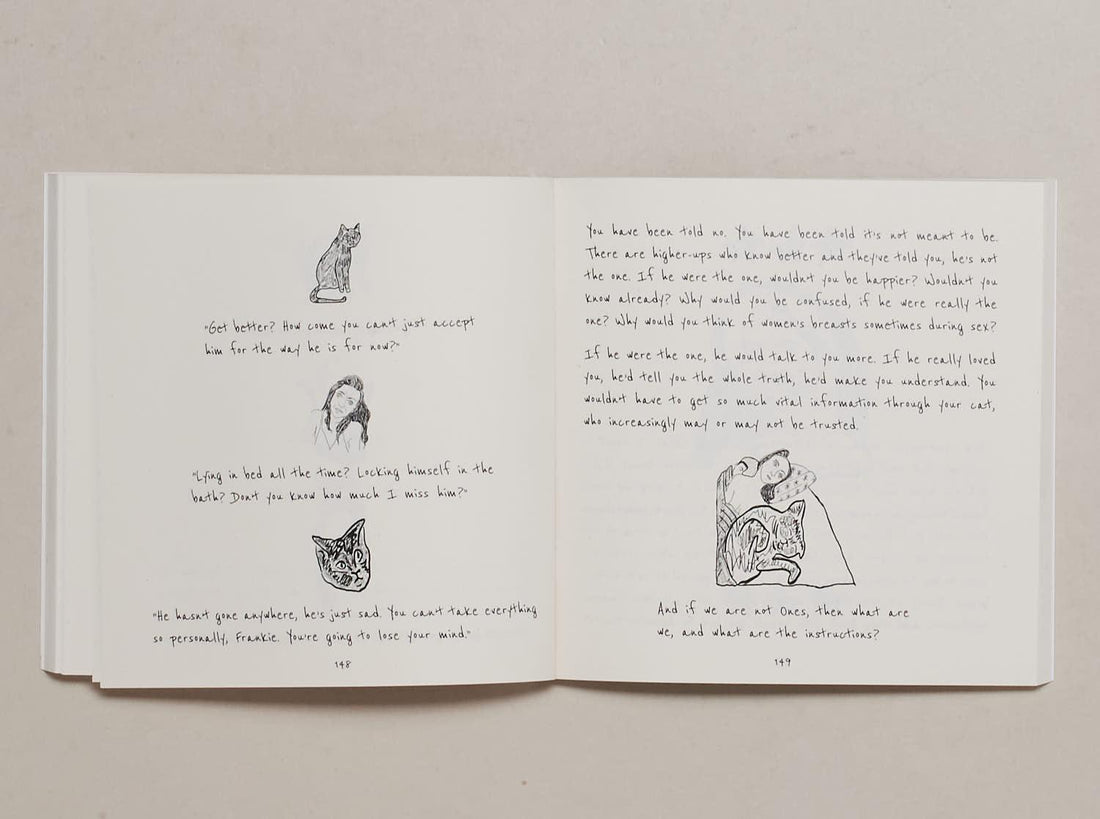 "Get better? How come you can't just accept
him for the way he is for now?"
"Lying in bed all the time? Locking himself in the
bath? Don't you know how much I miss him?"
"He hasn't gone anywhere, he's just sad. You can't take everything
so personally, Frankie. You're going to lose your mind."
148
You have been told no. You have been told it's not meant to be.
There are higher-ups who know better and they've told you, he's not
the one. If he were the one, wouldn't you be happier? Wouldn't you
know already? Why would you be confused, if he were really the
one? Why would you think of women's breasts sometimes during sex?
If he were the one, he would talk to you more. If he really loved
you, he'd tell you the whole truth, he'd make you understand. You
wouldn't have to get so much vital information through your cat,
who increasingly may or may not be trusted.
And if we are not Ones, then what are
we, and what are the instructions?
149